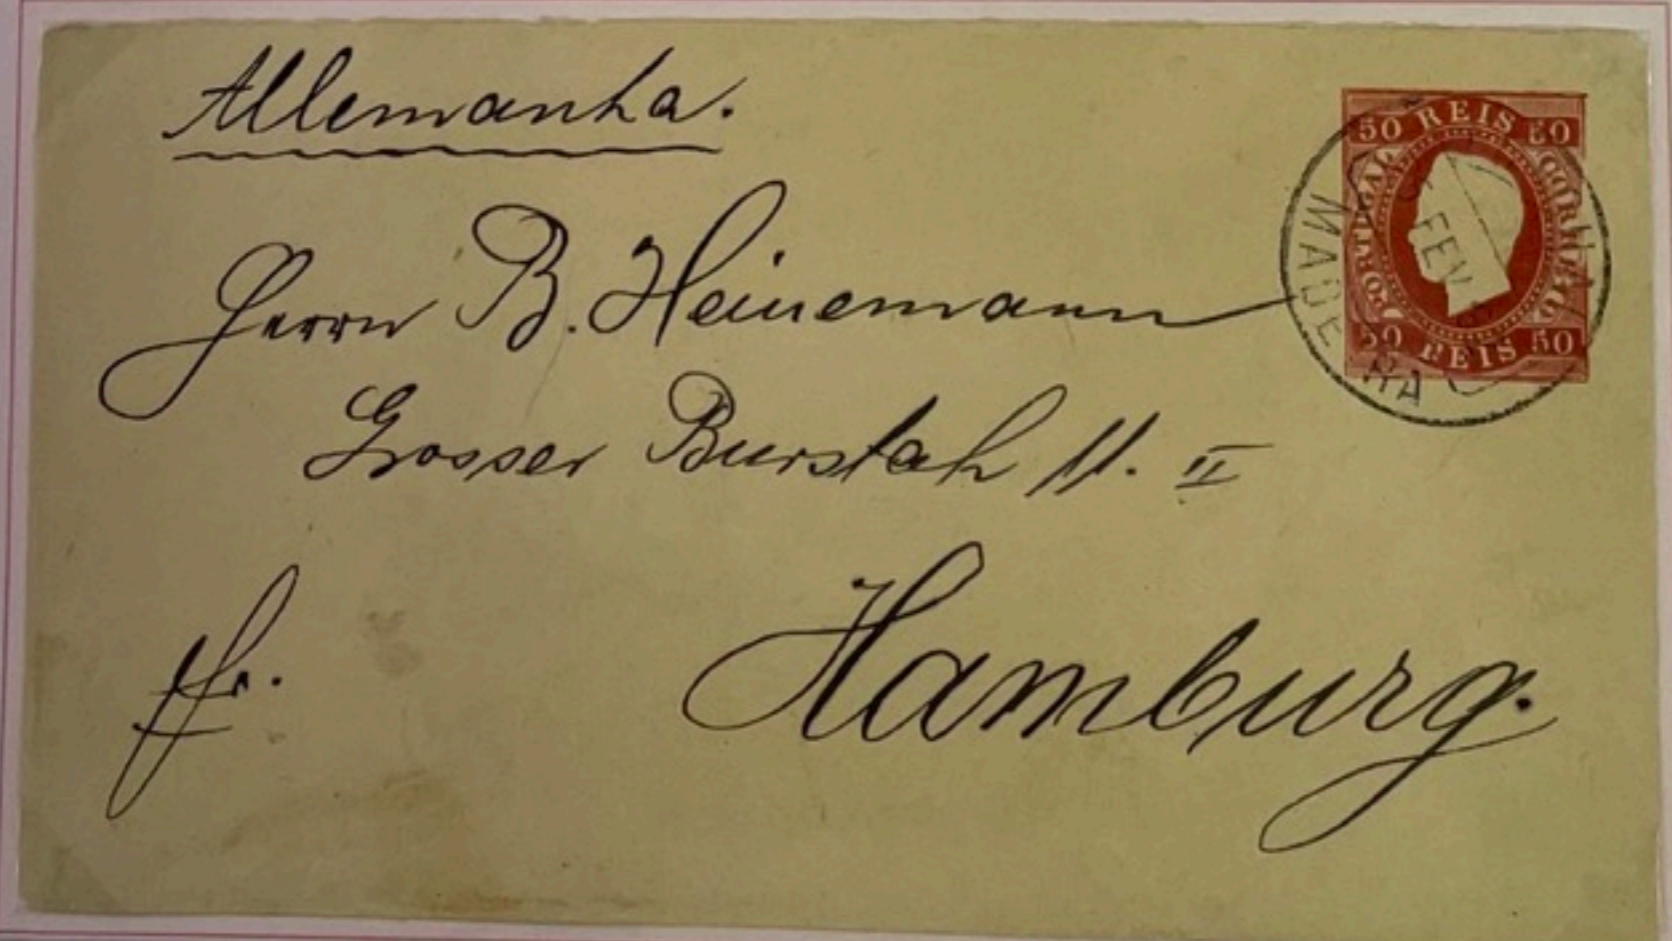 Allemanha.
50 REIS 50
PORTUGAL
CORREIO
FEV
MADEIRA
50 REIS 50
Herrn B. Heinemann
Grosser Burstah 11. II
fr.
Hamburg.